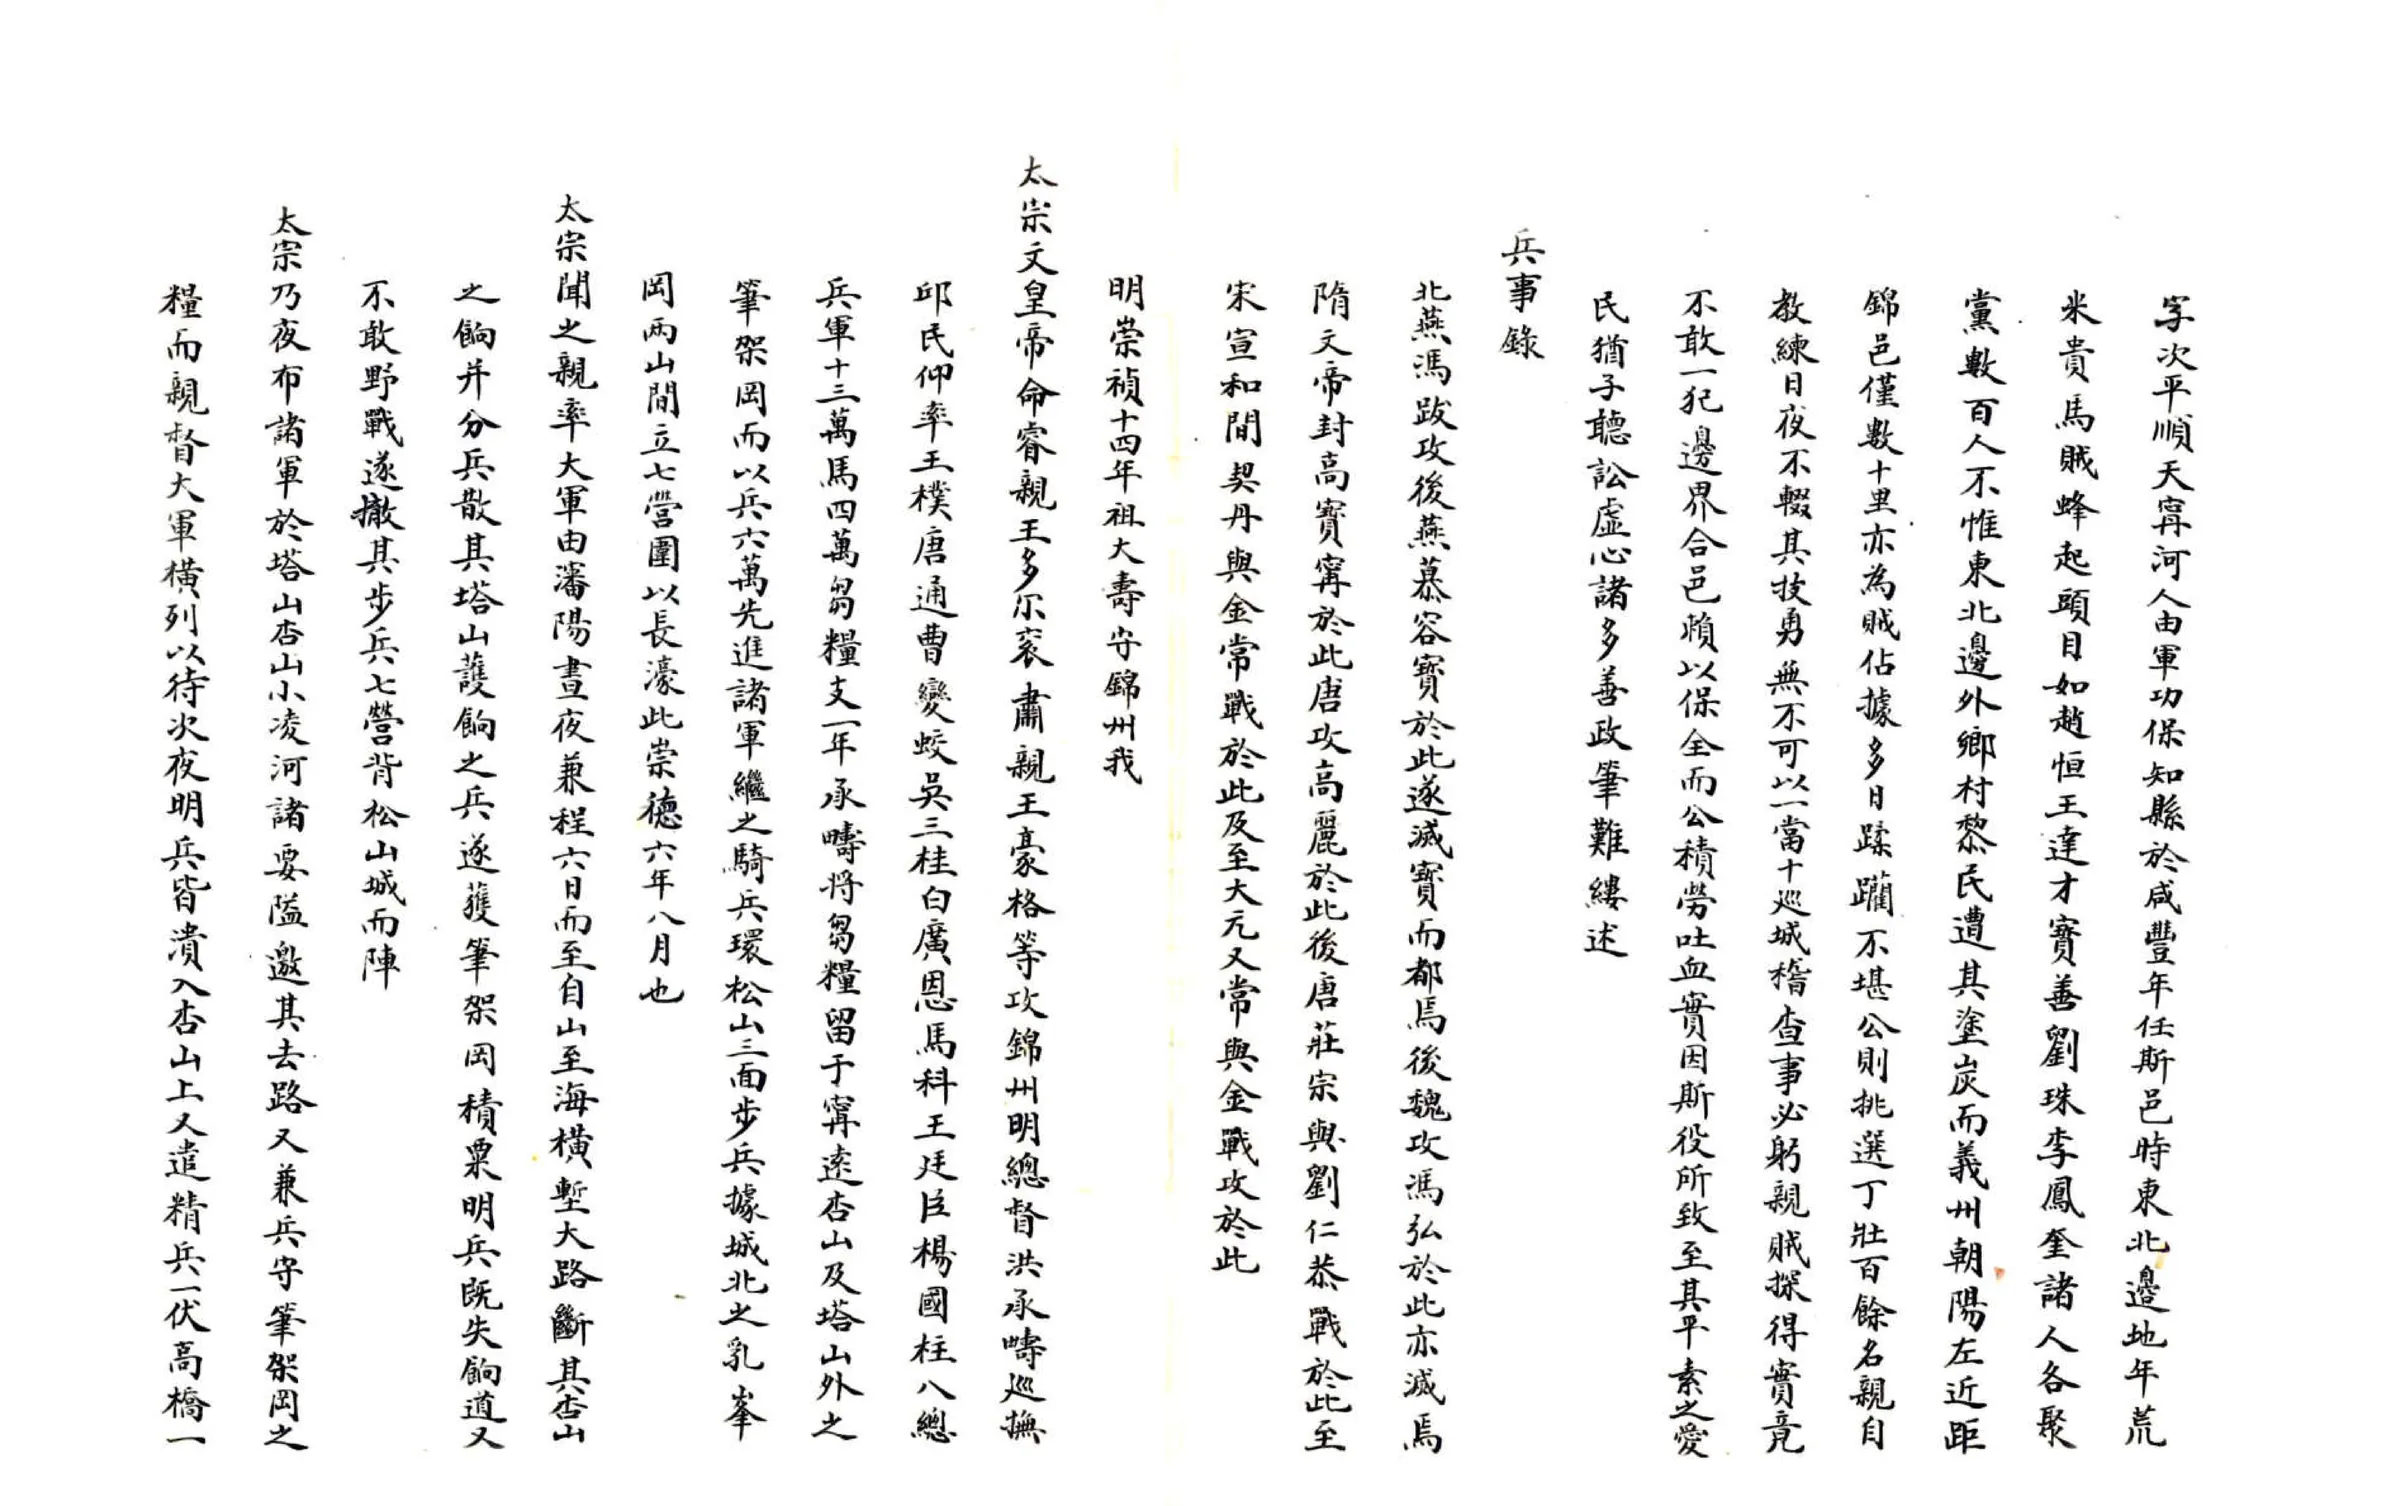 字次平順天寗河人由軍功保知縣於咸豐年任斯邑時東北邉地年荒
米貴馬賊蜂起頭目如趙恒王達才寳善劉珠李鳳奎諸人各聚
黨數百人不惟東北邉外鄉村黎民遭其塗炭而義州朝陽左近距
錦邑僅數十里亦為賊佔據多日蹂躪不堪公則挑選丁壯百餘名親自
教練日夜不輟其技勇無不可以一當十巡城稽查事必躬親賊探得實竟
不敢一犯邉界合邑頼以保全而公積勞吐血實因斯役所致至其平素之愛
民猶子聽訟虛心諸多善政筆難縷述
兵事錄
北燕馮跋攻後燕慕容寳於此遂滅寳而都焉後魏攻馮弘於此亦滅焉
隋文帝封高寳寗於此唐攻高麗於此後唐莊宗與劉仁恭戰於此至
宋宣和間契丹與金常戰於此及至大元又常與金戰攻於此
明崇禎十四年祖大壽守錦州我
太宗文皇帝命睿親王多尔袞肅親王豪格等攻錦州明總督洪承疇巡撫
邱民仰率王樸唐通曹變蛟吳三桂白廣恩馬科王廷臣楊國柱八總
兵軍十三萬馬四萬芻糧支一年承疇将芻糧留于寗遠杏山及塔山外之
筆架岡而以兵六萬先進諸軍繼之騎兵環松山三面步兵據城北之乳峯
岡兩山間立七營圍以長濠此崇德六年八月也
太宗聞之親率大軍由瀋陽晝夜兼程六日而至自山至海橫塹大路斷其杏山
之餉并分兵散其塔山護餉之兵遂獲筆架岡積粟明兵既失餉道又
不敢野戰遂撤其步兵七營背松山城而陣
太宗乃夜布諸軍於塔山杏山小凌河諸要隘邀其去路又兼兵守筆架岡之
糧而親督大軍橫列以待次夜明兵皆潰入杏山上又遣精兵一伏高橋一